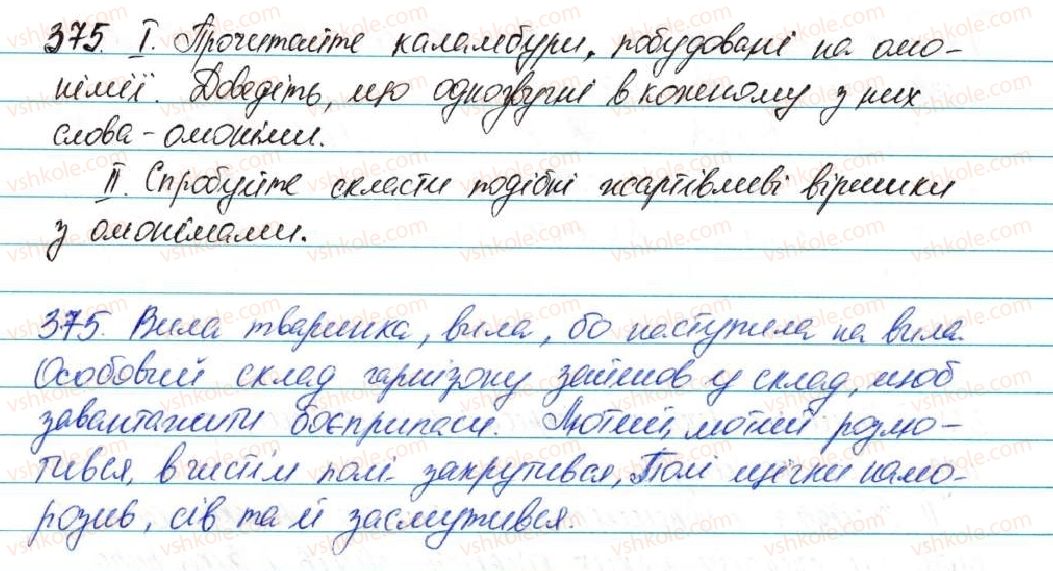 375. I. Прочитайте каламбури, побудовані на омо-
німії. Доведіть, що однозвучні в кожному з них
слова-омоніми.
II. Спробуйте скласти подібні жартівливі віршики
з омонімами.
375. Вила тваринка, вила, бо наступила на вила.
Особовий склад гарнізону зайшов у склад, щоб
завантажити боєприпаси. Лютий, лютий розлю-
тився, в чистім полі закрутився, Той щічки намо-
розив, сів та й засмутився.